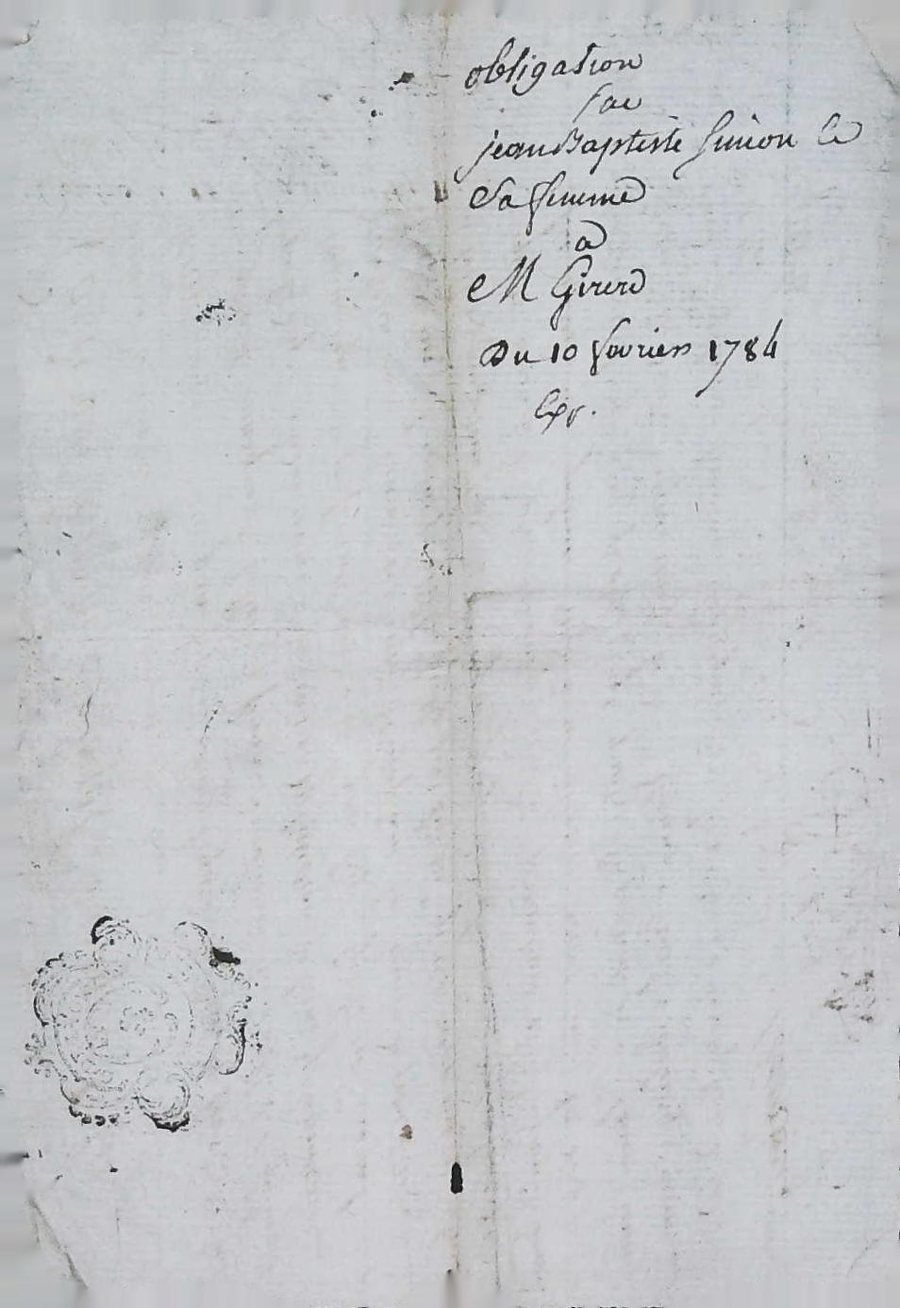 obligation
par
jean Baptiste Simon et
Sa femme
a
M Girerd
Du 10 fevrier 1784
Exp.